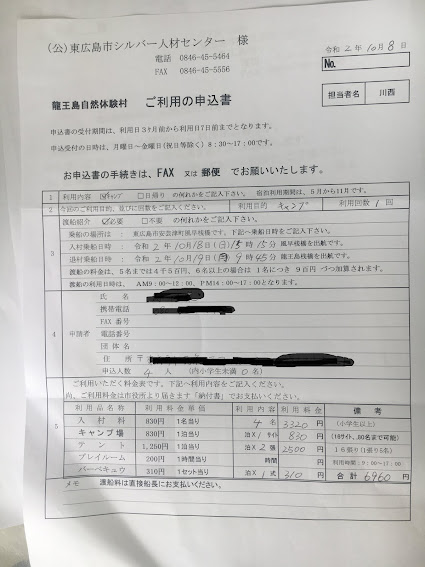 (公)東広島市シルバー人材センター 様
電話 0846-45-5464
FAX 0846-45-5556
令和 2年 10月 8日
No.
担当者名 川西
龍王島自然体験村 ご利用の申込書
申込書の受付期間は、利用日3ヶ月前から利用日7日前までとなります。
申込受付の日時は、月曜日~金曜日(祝日等除く) 8:30~17:00です。
お申込書の手続きは、FAX 又は 郵便 でお願いいたします。
1 利用内容 キャンプ □日帰り の何れかをご記入下さい。 宿泊利用期間は、5月から11月です。
2 今回のご利用目的、並びに回数をご記入ください。 利用目的 キャンプ 利用回数 1 回
3 渡船紹介 必要 □不要 の何れかをご記入下さい。
乗船の場所は : 東広島市安芸津町風早桟橋です。下記へ乗船日時をご記入ください。
入村乗船日時 : 令和 2年 10月18日(日) 15分 風早桟橋を出航です。
退村乗船日時 : 令和 2年 10月19日(月) 9時45分 龍王島桟橋を出航です。
渡船の料金は、5名までは4千5百円、6名以上の場合は 1名につき 9百円 づつ加算されます。
渡船の利用日時は、 AM9:00~12:00、PM14:00~17:00となります。
4 申請者
氏 名
携帯電話
FAX 番号
電話番号
団体名
住 所
申込人数 4 人 (内小学生未満 0 名)
5 ご利用いただく料金表です。下記へ利用内容をご記入ください。
尚、ご利用料金は市役所より届きます「納付書」でお支払いください。
利用品名称 利用料金単価 利用内容 利用料金 備考
入村料 830円 1名当り 4 名 3320 円 (小学生以上)
キャンプ場 830円 1泊当り 泊×1サイト 830 円 (16サイト、80名まで可能)
テント 1,250円 1泊当り 泊×2張 2500 円 16張り(1張り5名)
プレイルーム 200円 1時間当り 時間 円 利用時間:9:00~17:00
バーベキュウ 310円 1セット当り 泊×1式 310 円 合計 6960 円
メモ 渡船料は直接船長にお支払いください。